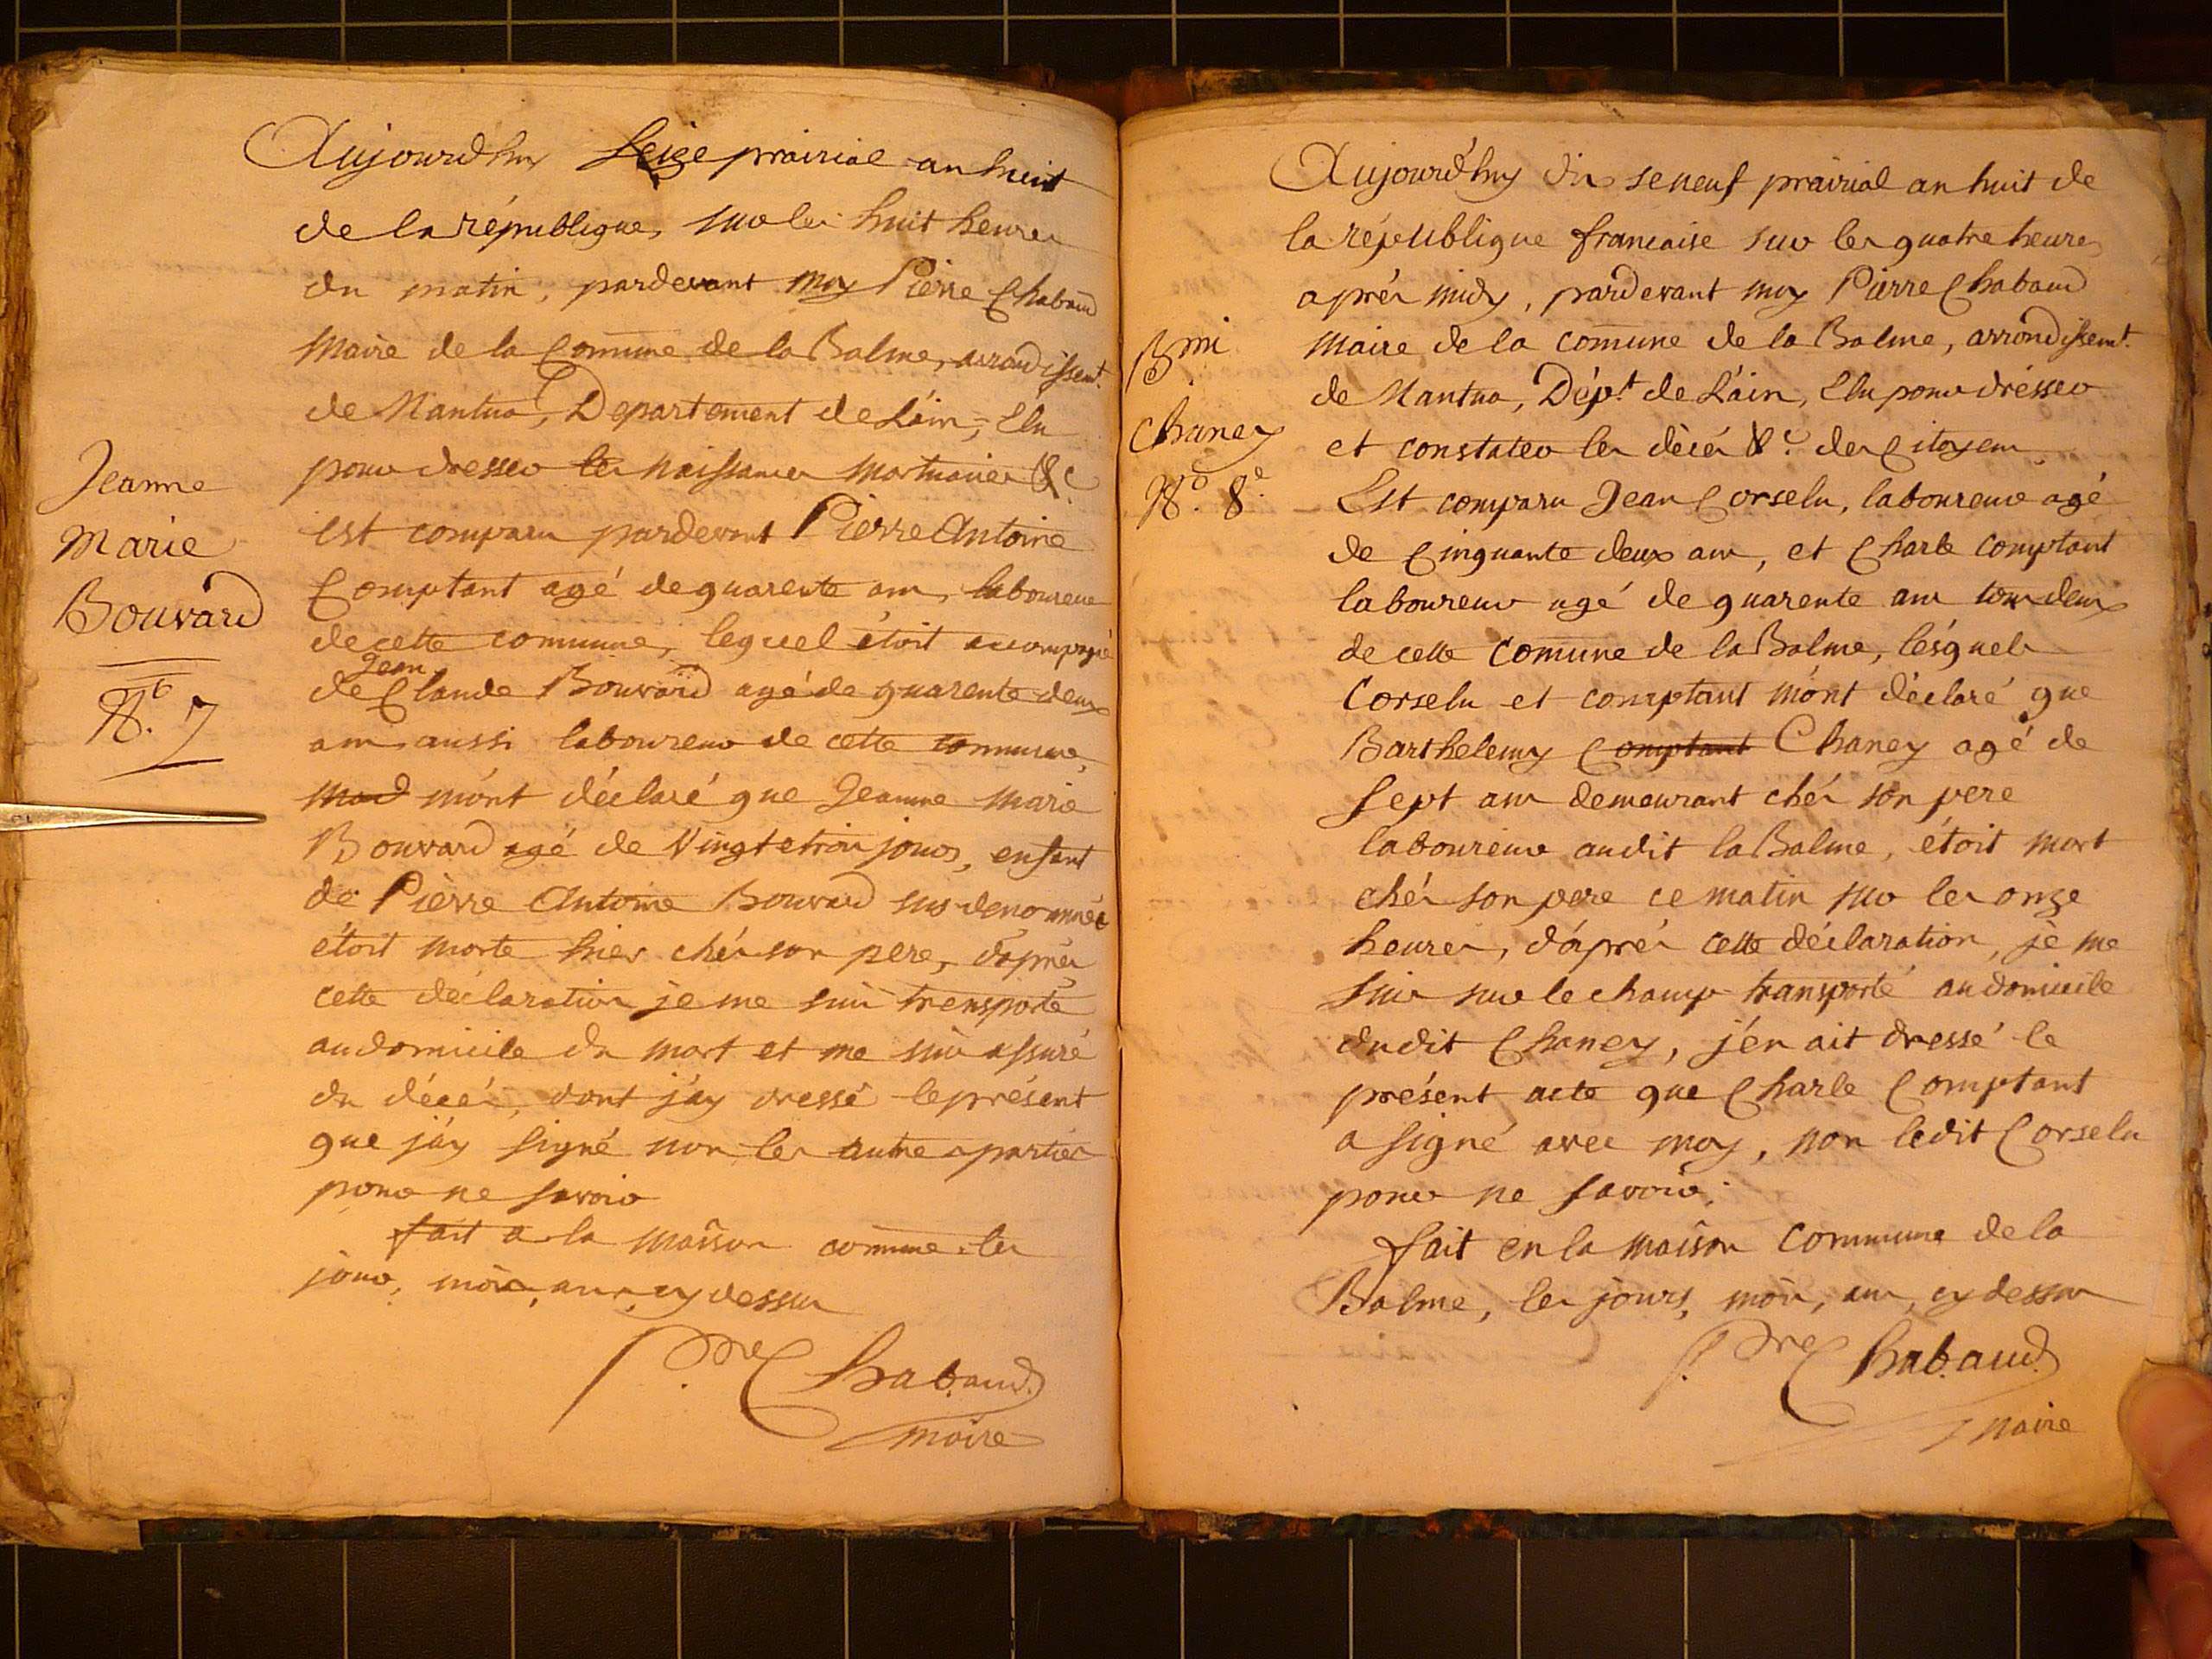 Aujourd'huy seize prairial an huit
de la république, sur les huit heures
du matin, pardevant moy Pierre Chabaud
maire de la Comune de la Balme, arrondissemt.
de Nantua, Departement de L'ain, Elu
pour dresser les naissances mortuaires &c
est comparu pardevent Pierre Antoine
Comptant agé de quarente ans, laboureur
de cette commune, lequel étoit accompagné
de Jean Claude Bouvard agé de quarente deux
ans aussi laboureur de cette commune,
m'ont déclaré que Jeanne Marie
Bouvard agé de vingt et trois jours, enfant
de Pierre Antoine Bouvard sus denommés
étoit morte hier chés son pere, d'après
cette déclaration je me suis transporté
au domicile du mort et me suis assuré
du décés, dont j'ay dressé le présent
que j'ay signé non les autres parties
pour ne savoir
fait a la maison comune les
jour, mois, an, cy dessus
Pre Chabaud
maire
Jeanne
Marie
Bouvard
No. 7
Aujourd'huy dix seneuf prairial an huit de
la république francaise sur les quatre heures
aprés midy, pardevant moy Pierre Chabaud
maire de la comune de la Balme, arrondissemt.
de Nantua, Dépt. de L'ain, Elu pour drésser
et constater les décés &c. des Citoyens
Est comparu Jean Corselu, laboureur agé
de Cinquante deux ans, et Charle Comptant
laboureur agé de quarente ans tous deux
de cette Comune de la Balme, lésquels
Corselu et comptant m'ont déclaré que
Barthelemy Comptant Chaney agé de
sept ans demeurant chés son pere
laboureur audit la Balme, étoit mort
chés son pere ce matin sur les onze
heures, d'aprés cette déclaration, je me
suis sur le champ transporté au domicile
dudit Chaney, j'en ait dressé le
présent acte que Charle Comptant
a signé avec moy, non ledit Corselu
pour ne savoir.
fait en la maison Commune de la
Balme, les jours, mois, ans, cy dessus
Pre Chabaud
Maire
Bmi
Chaney
No. 8e